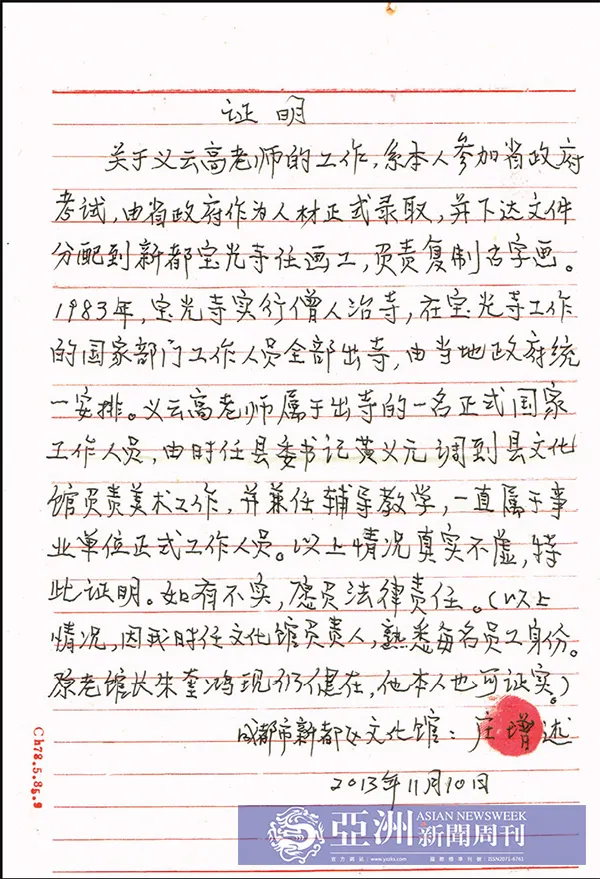 证明
关于义云高老师的工作,系本人参加省政府
考试,由省政府作为人材正式录取,并下达文件
分配到新都宝光寺任画工,负责复制古字画。
1983年,宝光寺实行僧人治寺,在宝光寺工作
的国家部门工作人员全部出寺,由当地政府统
一安排。义云高老师属于出寺的一名正式国家
工作人员,由时任县委书记黄义元调到县文化
馆负责美术工作,并兼任辅导教学,一直属于事
业单位正式工作人员。以上情况真实不虚,特
此证明。如有不实,愿负法律责任。(以上
情况,因我时任文化馆负责人,熟悉每名员工身份。
原老馆长朱奎鸿现仍健在,他本人也可证实。)
成都市新都区文化馆:庄增述
2013年11月10日
Ch78.5.85.9
亞洲新聞周刊
ASIAN NEWSWEEK
官方網站 | www.yzzks.com 國際標準刊號 | ISSN2071-6761